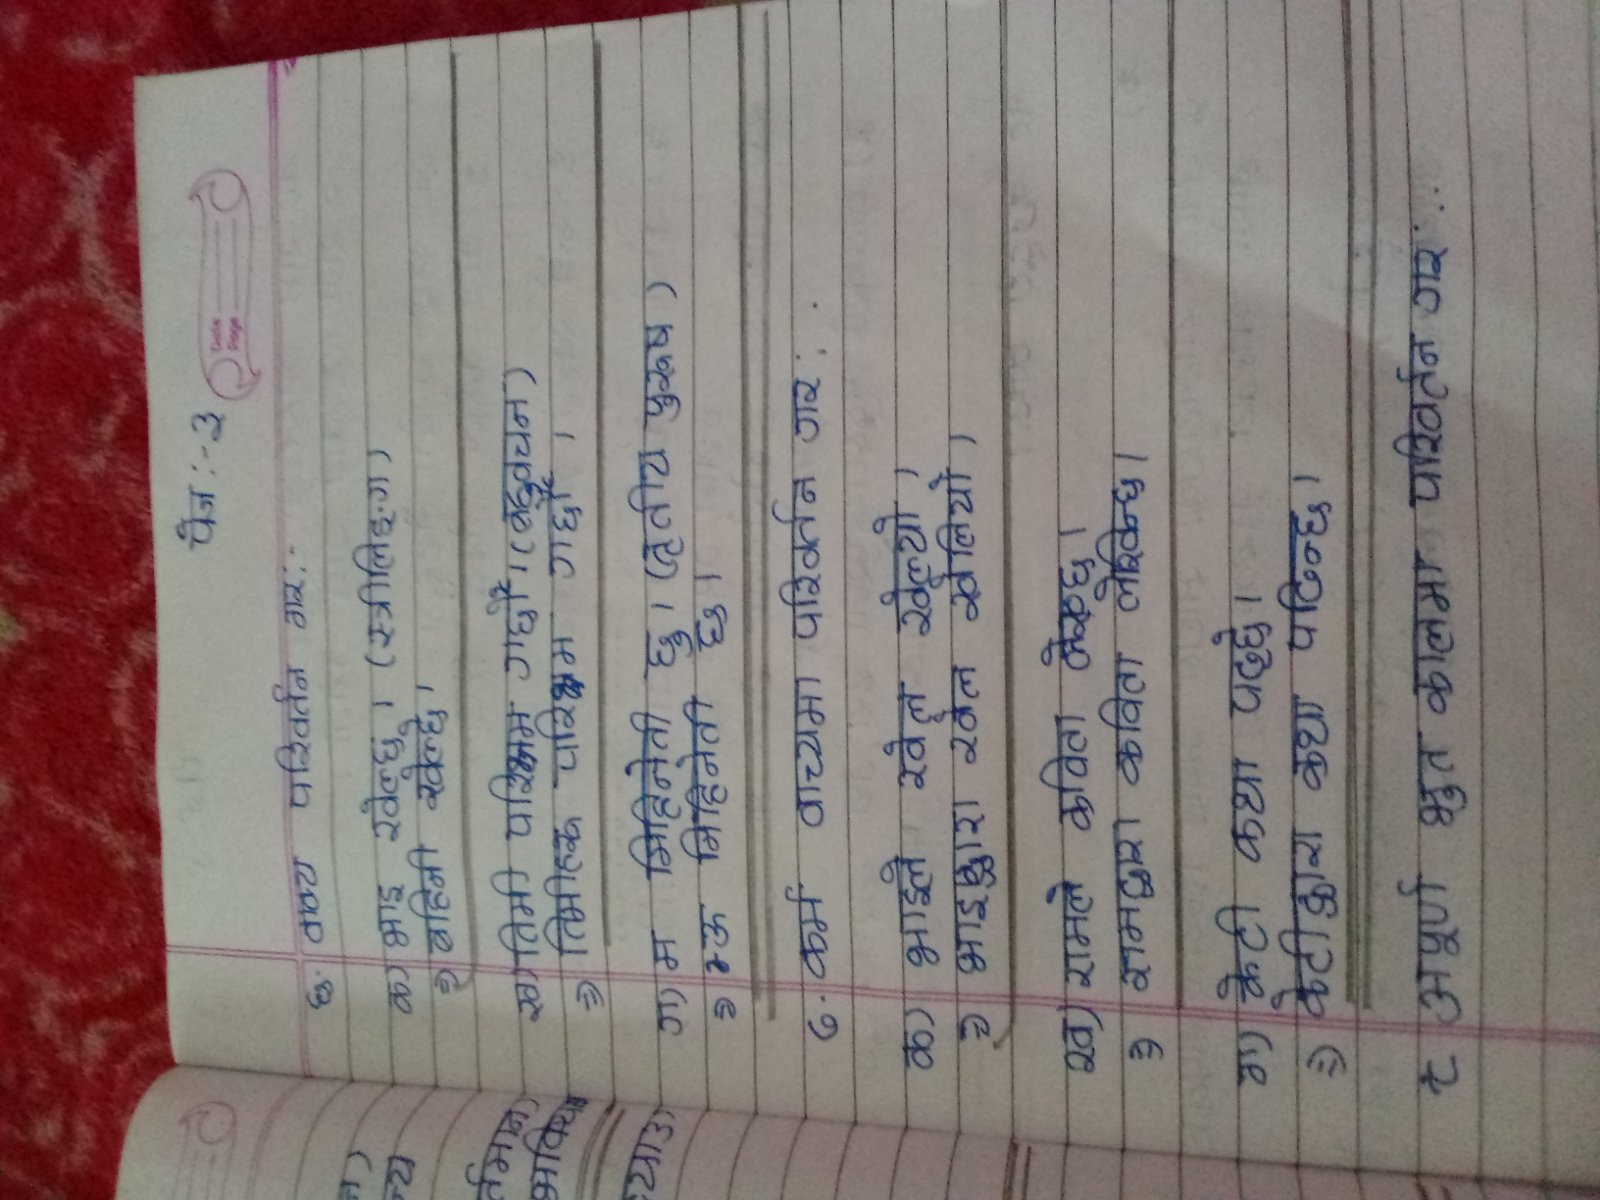 पेज :- ३
Date
Page
६. वाक्य परिवर्तन गर:-
क) भाइ खेल्छ। (स्त्रीलिङ्ग)
⇒ बहिनी खेल्छे।
ख) तिमी परिश्रम गर्छौ। (बहुवचन)
⇒ तिमीहरू परिश्रम गर्छौ।
ग) म मिहिनेती छु। (तृतीय पुरूष)
⇒ ऊ मिहिनेती छ।
७. कर्म वाच्यमा परिवर्तन गर:
क) भाइले खेल खेल्यो।
⇒ भाइद्वारा खेल खेलियो।
ख) रामले कविता लेख्छ।
⇒ रामद्वारा कविता लेखिन्छ।
ग) केटी कथा पढ्छे।
⇒ केटीद्वारा कथा पढिन्छ।
८ अपूर्ण भुत कालमा परिवर्तन गर: